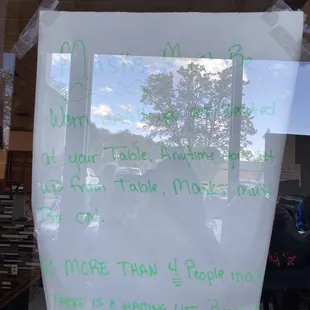 Masks Must Be
Worn until you are seated
at your Table. Anytime you get
up from Table, Masks must
Be on.
No MORE THAN 4 People in a
THERE IS A WAITING LIST